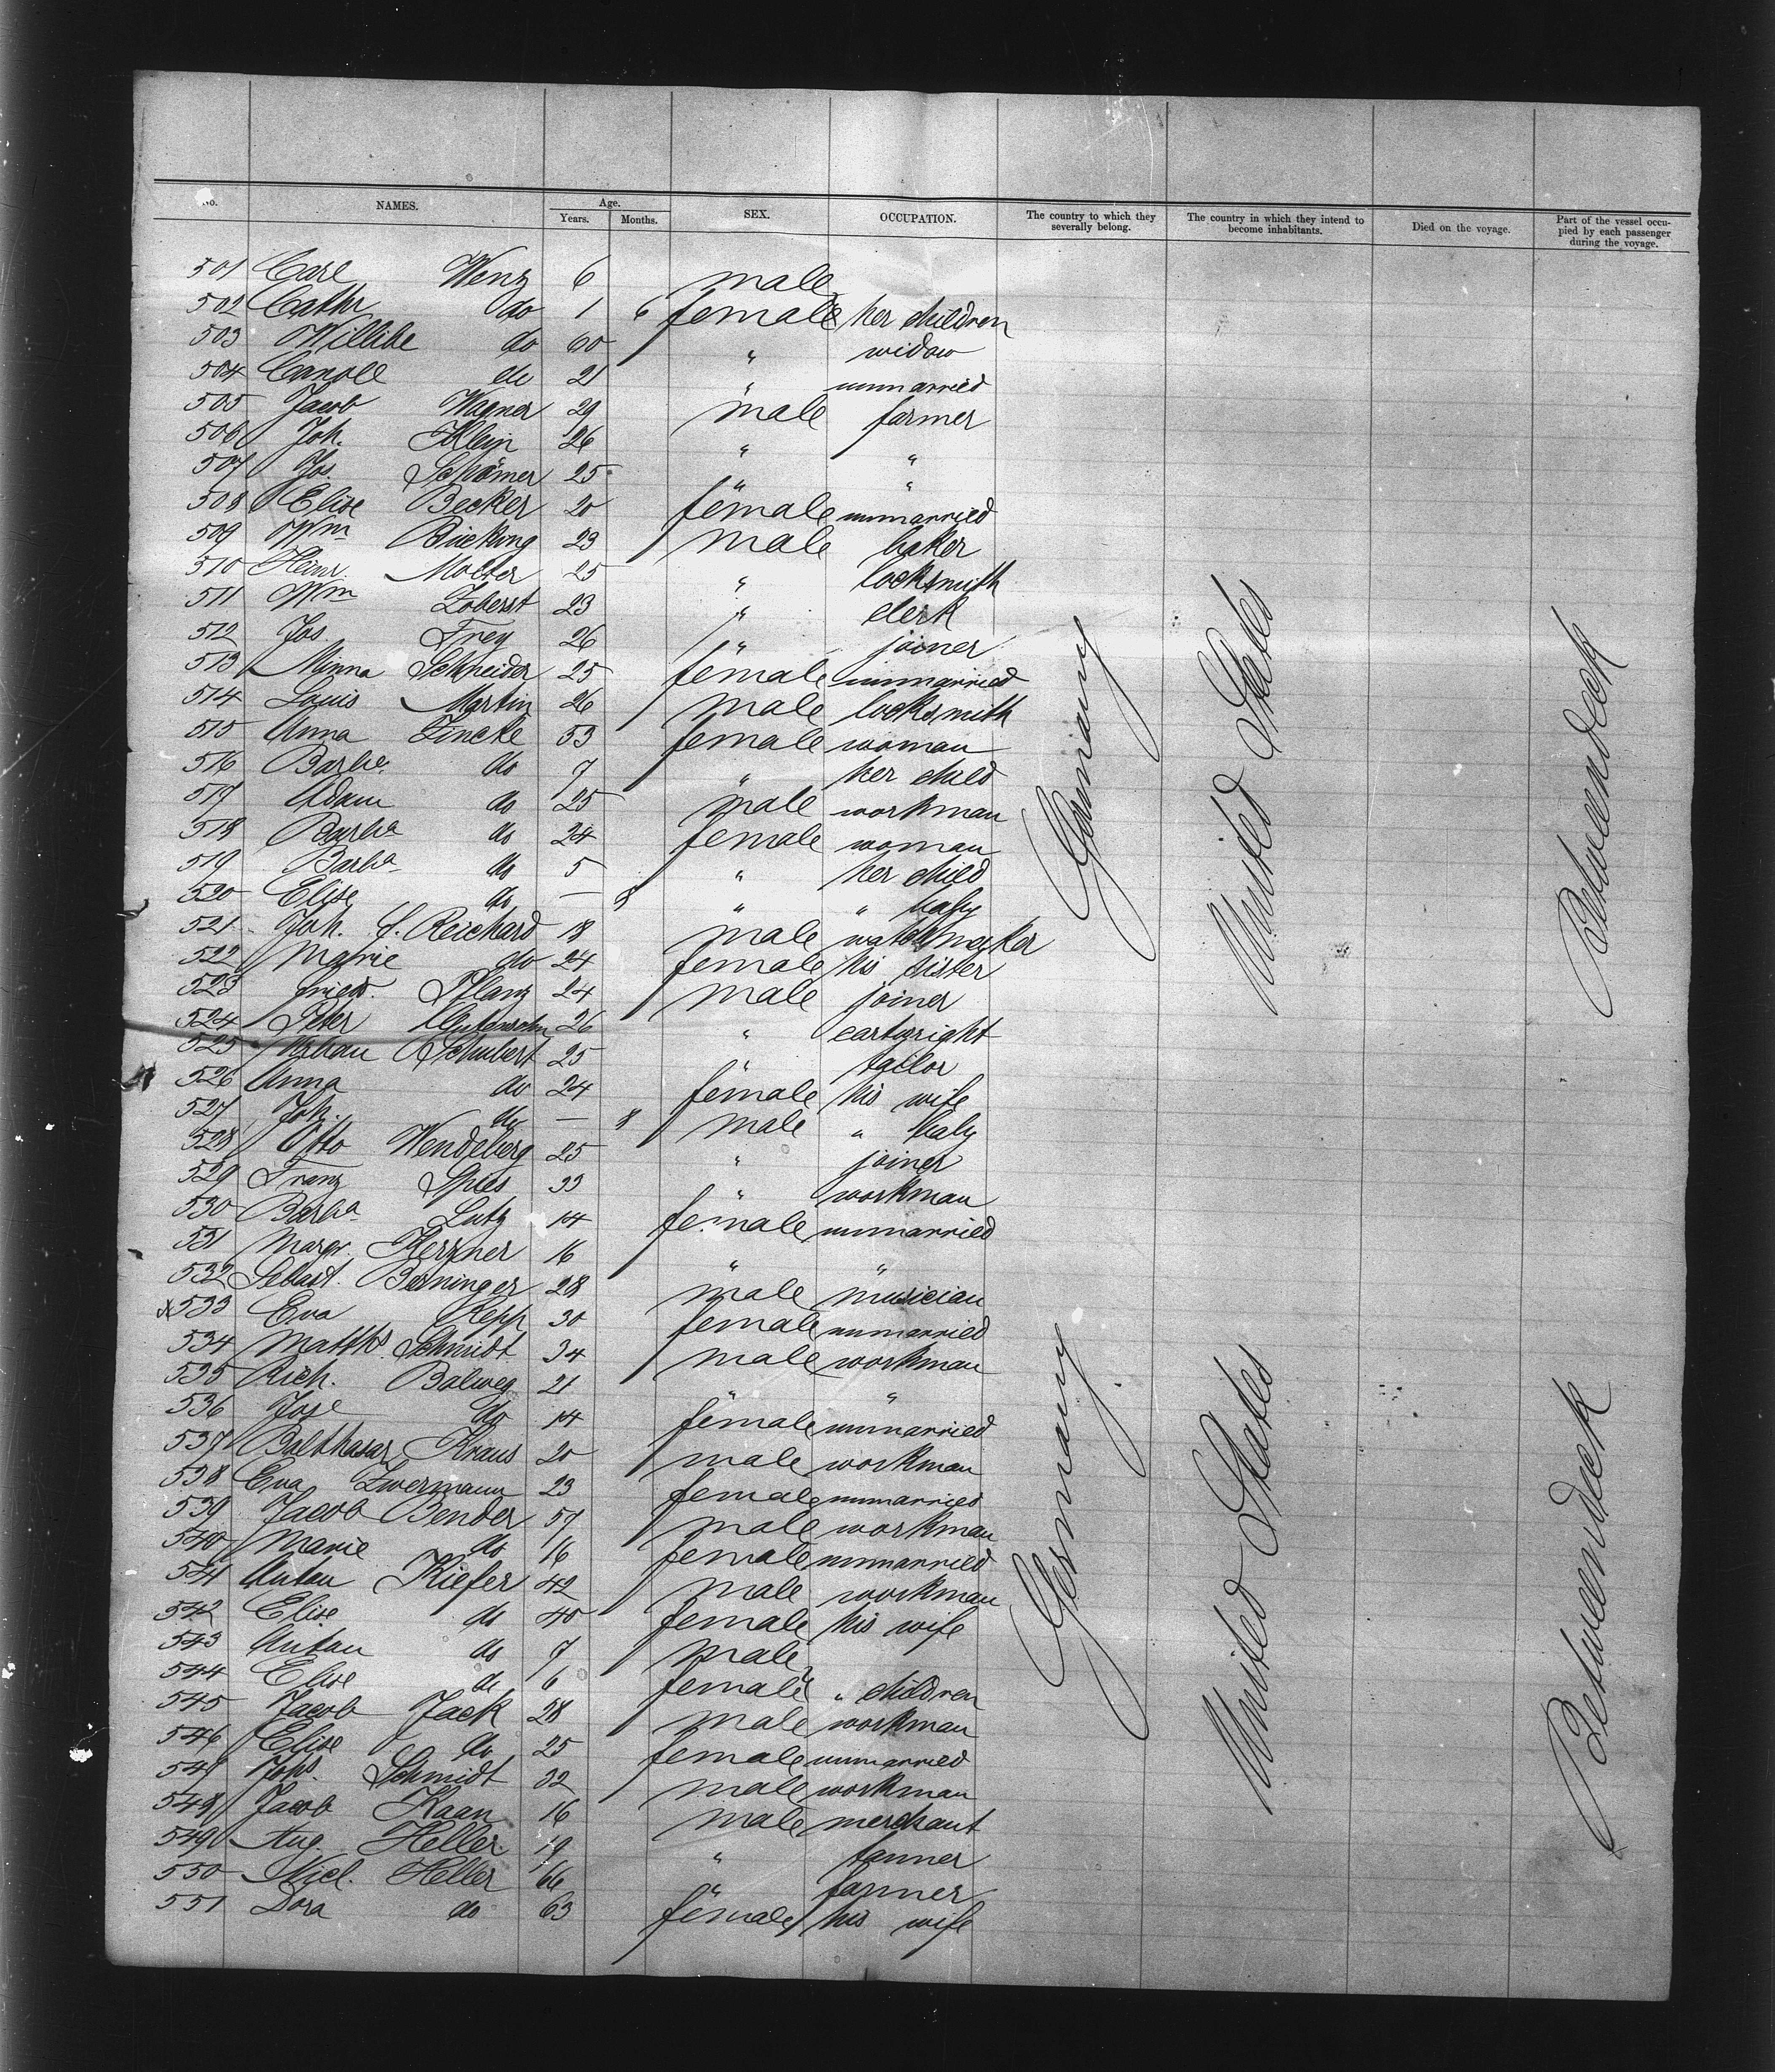 No. NAMES. Age. Years. Months. SEX. OCCUPATION. The country to which they severally belong. The country in which they intend to become inhabitants. Died on the voyage. Part of the vessel occupied by each passenger during the voyage.
501 Carl Wenz 6 male
502 Cathr do 1 6 female her children
503 do 60 " widow
504 do 21 " unmarried
505 Jacob Wagner 29 male farmer
506 Joh. Klein 26 " "
507 Jos. Schömer 25 " "
508 Elise Becker 20 female unmarried
509 Wm Bücking 23 male baker
510 Heinr. Molter 25 " locksmith
511 Wm Zoberst 23 " clerk
512 Jos. Frey 26 " joiner
513 Minna Schneider 25 female unmarried
514 Louis Martin 26 male locksmith
515 Anna Zincke 53 female woman
516 Barba do 7 " her child
517 Adam do 25 male workman
518 Barba do 24 female woman
519 Barba do 5 " her child
520 Elise do — 8 " " baby
521 Joh. f. Reichard 18 male watchmaker
522 Marie do 24 female his sister
523 Fried. Pflanz 24 male joiner
524 Peter 26 " cartwright
525 Schubert 25 " tailor
526 Anna do 24 female his wife
527 Joh. do — 8 male " baby
528 Otto Wendelberg 25 " joiner
529 Franz Spies 33 " workman
530 Barba Lutz 14 female unmarried
531 Margr. Kerzner 16 " "
532 Sebast. Berninger 28 male musician
x533 Eva Repp 30 female unmarried
534 Matths Schmidt 34 male workman
535 Rich. Balweg 21 " "
536 Jose do 14 female unmarried
537 Balthasar Kraus 20 male workman
538 Eva Zwermann 23 female unmarried
539 Jacob Bender 57 male workman
540 Marie do 16 female unmarried
541 Anton Kiefer 42 male workman
542 Elise do 40 female his wife
543 Anton do 7 male
544 Elise do 6 female " children
545 Jacob Jack 28 male workman
546 Elise do 25 female unmarried
547 Johs Schmidt 32 male workman
548 Jacob Kaan 16 male merchant
549 Aug. Heller 19 " tanner
550 Nicl. Heller 66 " farmer
551 Dora do 63 female his wife
Germany
United States
Betweendeck
Germany
United States
Betweendeck